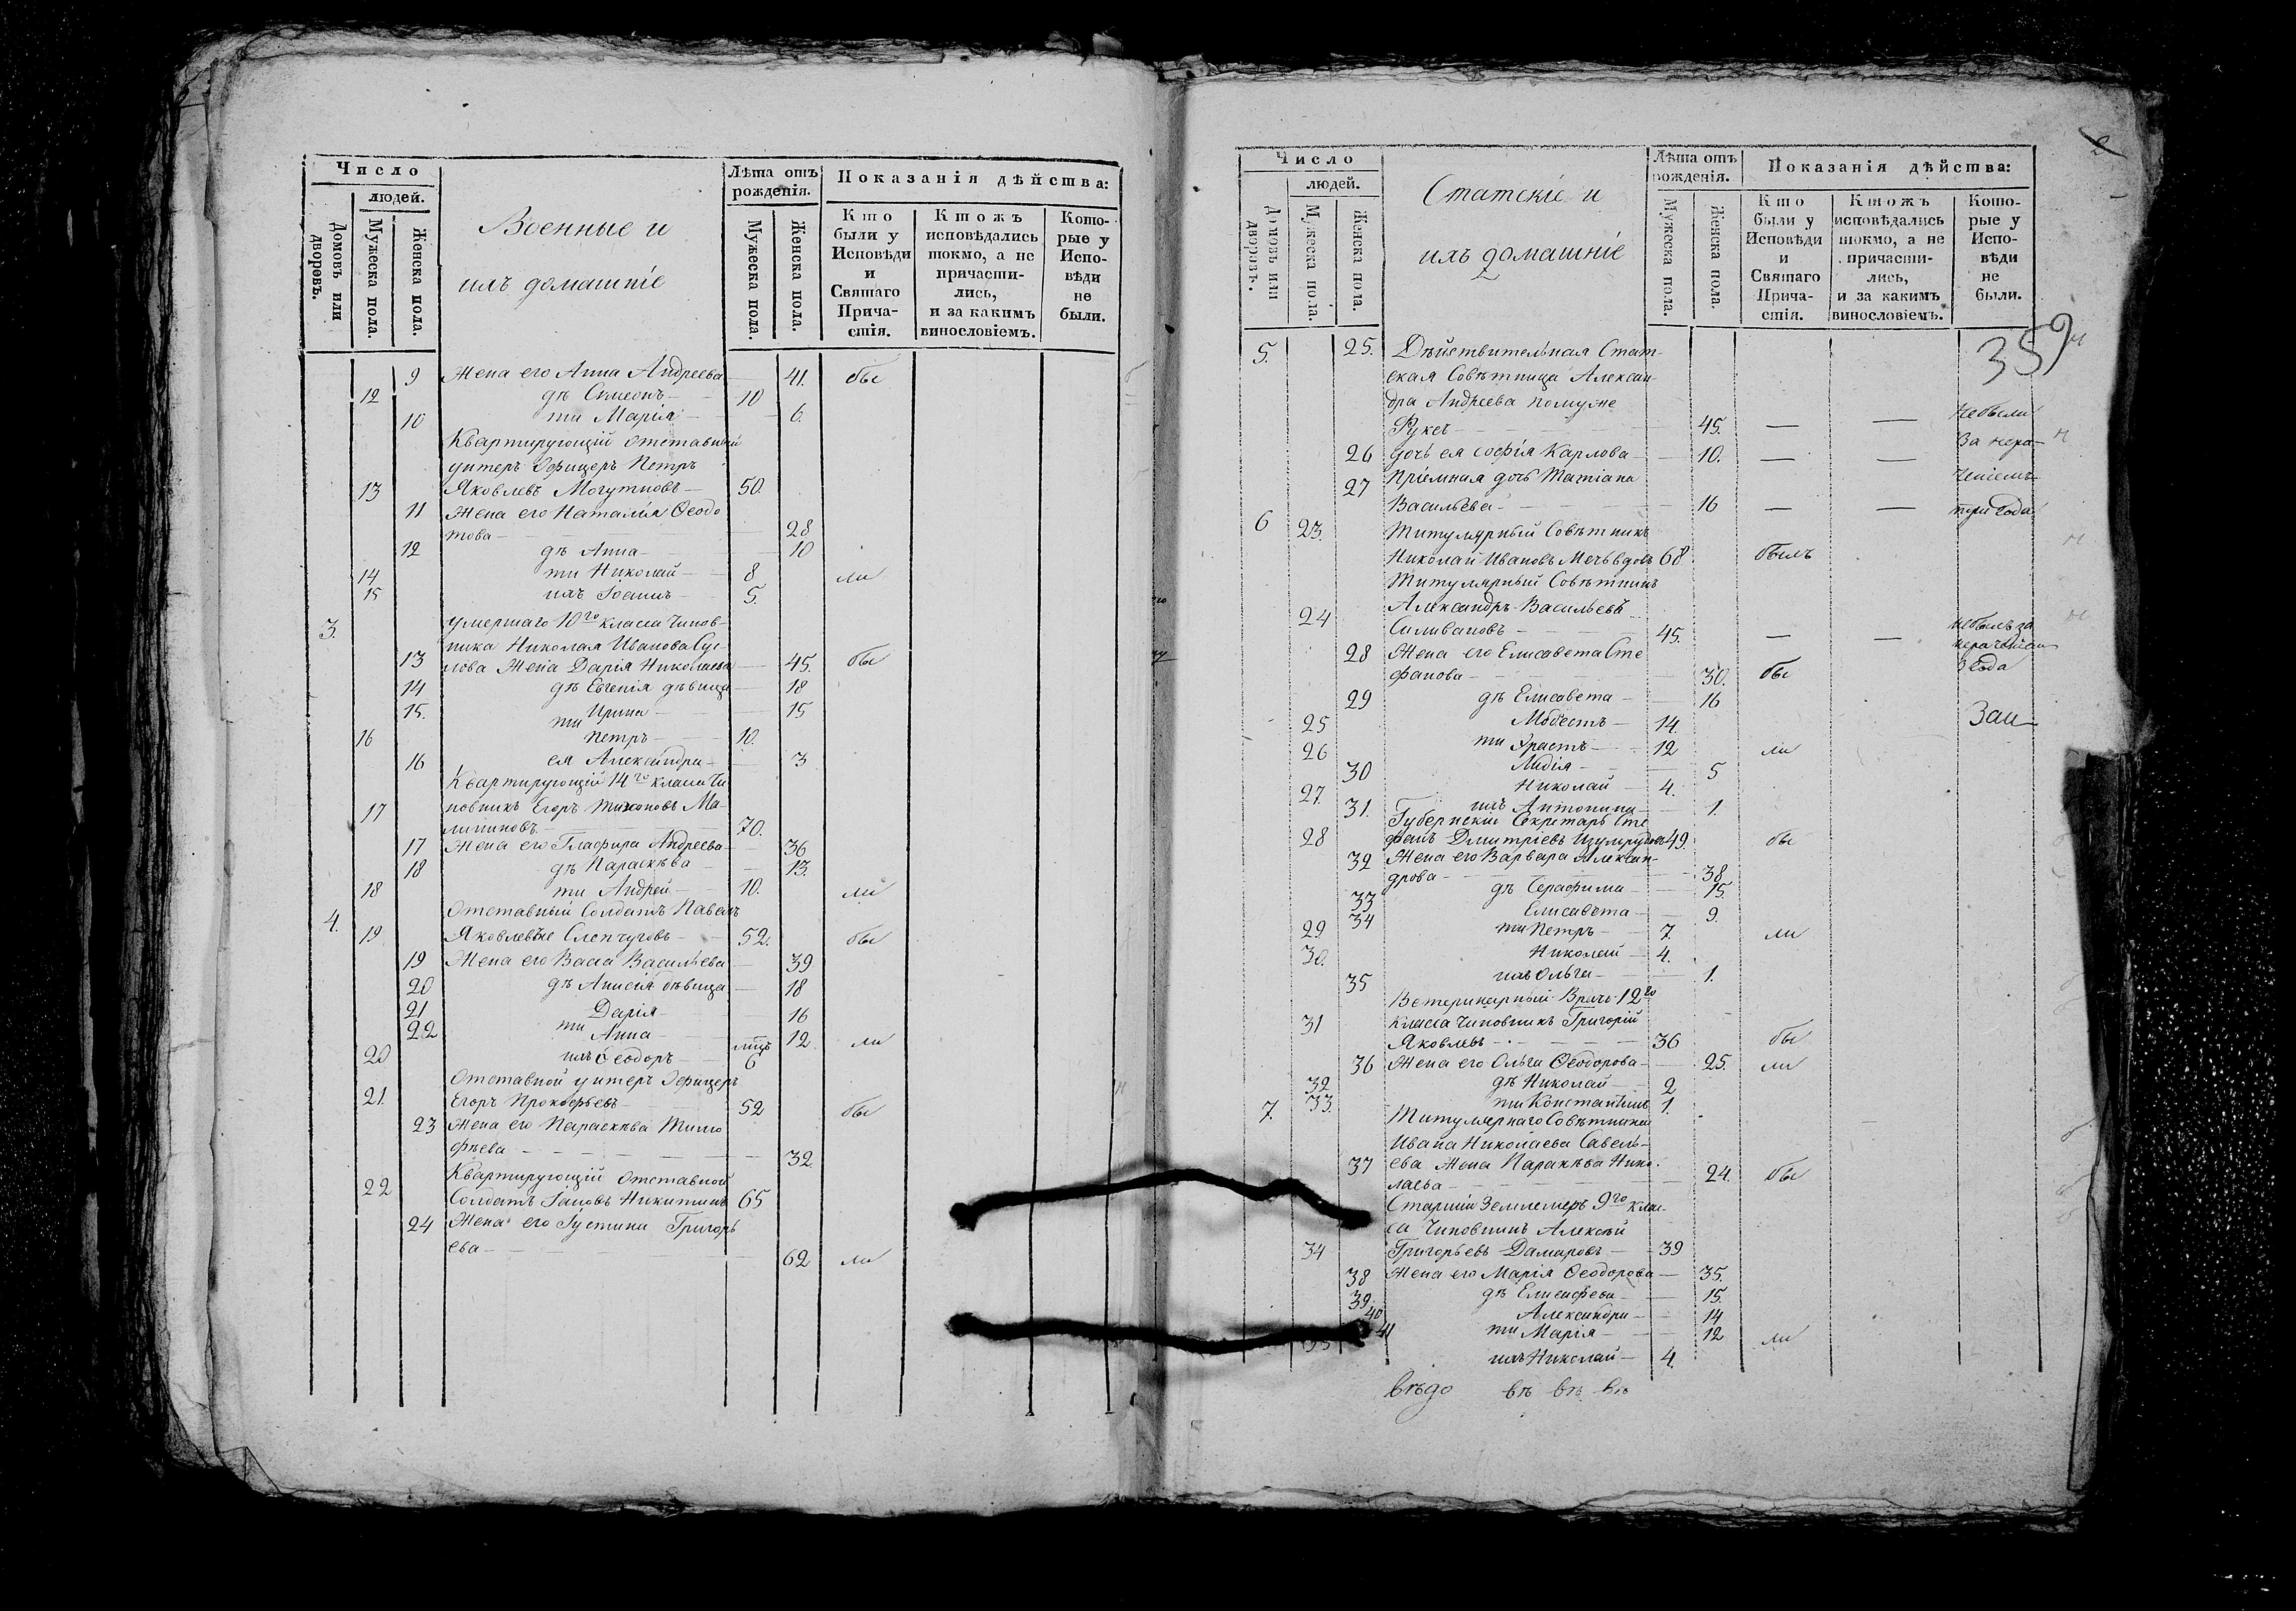 Число
людей.
Домовъ или дворовъ.
Мужеска пола.
Женска пола.
Военные и
ихъ домашніе
Лѣта отъ рожденія.
Мужеска пола.
Женска пола.
Показанія дѣйства:
Кто были у Исповѣди и Святаго Прича-стія.
Ктожъ исповѣдались токмо, а не причасти-лись, и за какимъ винословіемъ.
Кото-рые у Испо-вѣди не были.
9 Жена его Анна Андреева 41. бы
12 дѣ Симеонъ 10
10 ти Марія 6.
Квартирующій отставный
унтеръ Офицеръ Петръ
13 Яковлевъ Могутновъ 50.
11 Жена его Наталія Ѳеодо
това 28
12 дѣ Анна 10
14 ти Николай 8 ли
15 ихъ Іоаннъ 5.
3. умершаго 10го класса Чинов-
ника Николая Иванова Сус-
13 лова Жена Дарія Николаева 45. бы
14 дѣ Евгенія дѣвица 18
15. ти Ирина 15
16 Петръ 10.
16 ея Александра 3
Квартирующій 14го класса Чи
17 новникъ Егоръ Тихоновъ Ма-
линновъ 70.
17 Жена его Глафира Андреева 36
18 дѣ Параскѣва 13.
18 ти Андрей 10. ли
4. Отставный Солдатъ Павелъ
19 Яковлевъ Слепчуговъ 52. бы
19 Жена его Васса Васильева 39
20 дѣ Анисія дѣвица 18
21 Дарія 16
22 ти Анна 12 ли
20 ихъ Ѳеодоръ 6
Отставной унтеръ Офицеръ
21. Егоръ Прокофьевъ 52 бы
23 Жена его Параскѣва Тимо
фѣева 32
Квартирующій Отставной
22 Солдатъ Іаковъ Никитинъ 65
24 Жена его Іустина Григорь
ева 62 ли
Число
людей.
Домовъ или дворовъ.
Мужеска пола.
Женска пола.
Статскіе и
ихъ домашніе
Лѣта отъ рожденія.
Мужеска пола.
Женска пола.
Показанія дѣйства:
Кто были у Исповѣди и Святаго Прича-стія.
Ктожъ исповѣдались токмо, а не причасти-лись, и за какимъ винословіемъ.
Кото-рые у Испо-вѣди не были.
359
5. 25. Дѣйствительная Стат-
ская Совѣтница Алексан-
дра Андреева помуже
Фуксъ 45. — — Небыли
26 дочь ея Софія Карлова 10. — — За нера-
27 Пріемная дочь Татіана ченіемъ
Васильева 16 — — три года
6 23. Титулярный Совѣтникъ
Николай Ивановъ Мечь вдовъ 68. былъ
Титулярный Совѣтникъ
Александръ Васильевъ
24 Силивановъ 45. — — небылъ за
28 Жена его Елисавета Сте нераченіем
фанова 30. бы 3 года
29 дѣ Елисавета 16
25 Модестъ 14.
26 ти Ерастъ 12 ли
30 Лидія 5
27. Николай 4.
31. ихъ Антонина 1.
Губернскій Секретарь Сте
28 фанъ Дмитріевъ 49. бы
32 Жена его Варвара Алексан-
дрова 38
33 дѣ Серафима 15.
34 Елисавета 9.
29 ти Петръ 7 ли
30. Николай 4.
35 ихъ Ольга 1.
Ветеринарный Врачъ 12го
31 класса Чиновникъ Григорій
Яковлевъ 36 бы
36 Жена его Ольга Ѳеодорова 25. ли
32 дѣ Николай 2
33. ти Константинъ 1.
7. Титулярнаго Совѣтника
Ивана Николаева Савель-
37 ева Жена Параскѣва Нико-
лаева 24. бы
Старшій Землемеръ 9го клас-
са Чиновникъ Алексѣй
34 Григорьевъ Дамаровъ 39
38 Жена его Марія Ѳеодорова 35.
39 дѣ Елисавета 15.
40 Александра 14
41 ти Марія 12 ли
35 ихъ Николай 4.